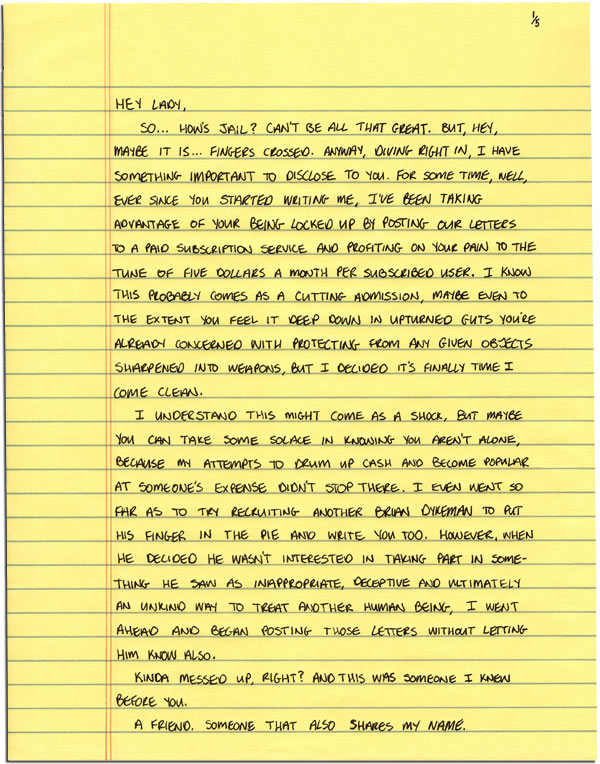 1/5
HEY LADY,
SO... HOW'S JAIL? CAN'T BE ALL THAT GREAT. BUT, HEY,
MAYBE IT IS... FINGERS CROSSED. ANYWAY, DIVING RIGHT IN, I HAVE
SOMETHING IMPORTANT TO DISCLOSE TO YOU. FOR SOME TIME, WELL,
EVER SINCE YOU STARTED WRITING ME, I'VE BEEN TAKING
ADVANTAGE OF YOUR BEING LOCKED UP BY POSTING OUR LETTERS
TO A PAID SUBSCRIPTION SERVICE AND PROFITING ON YOUR PAIN TO THE
TUNE OF FIVE DOLLARS A MONTH PER SUBSCRIBED USER. I KNOW
THIS PROBABLY COMES AS A CUTTING ADMISSION, MAYBE EVEN TO
THE EXTENT YOU FEEL IT DEEP DOWN IN UPTURNED GUTS YOU'RE
ALREADY CONCERNED WITH PROTECTING FROM ANY GIVEN OBJECTS
SHARPENED INTO WEAPONS, BUT I DECIDED IT'S FINALLY TIME I
COME CLEAN.
I UNDERSTAND THIS MIGHT COME AS A SHOCK, BUT MAYBE
YOU CAN TAKE SOME SOLACE IN KNOWING YOU AREN'T ALONE,
BECAUSE MY ATTEMPTS TO DRUM UP CASH AND BECOME POPULAR
AT SOMEONE'S EXPENSE DIDN'T STOP THERE. I EVEN WENT SO
FAR AS TO TRY RECRUITING ANOTHER BRIAN DYKEMAN TO PUT
HIS FINGER IN THE PIE AND WRITE YOU TOO. HOWEVER, WHEN
HE DECIDED HE WASN'T INTERESTED IN TAKING PART IN SOME-
THING HE SAW AS INAPPROPRIATE, DECEPTIVE AND ULTIMATELY
AN UNKIND WAY TO TREAT ANOTHER HUMAN BEING, I WENT
AHEAD AND BEGAN POSTING THOSE LETTERS WITHOUT LETTING
HIM KNOW ALSO.
KINDA MESSED UP, RIGHT? AND THIS WAS SOMEONE I KNEW
BEFORE YOU.
A FRIEND. SOMEONE THAT ALSO SHARES MY NAME.